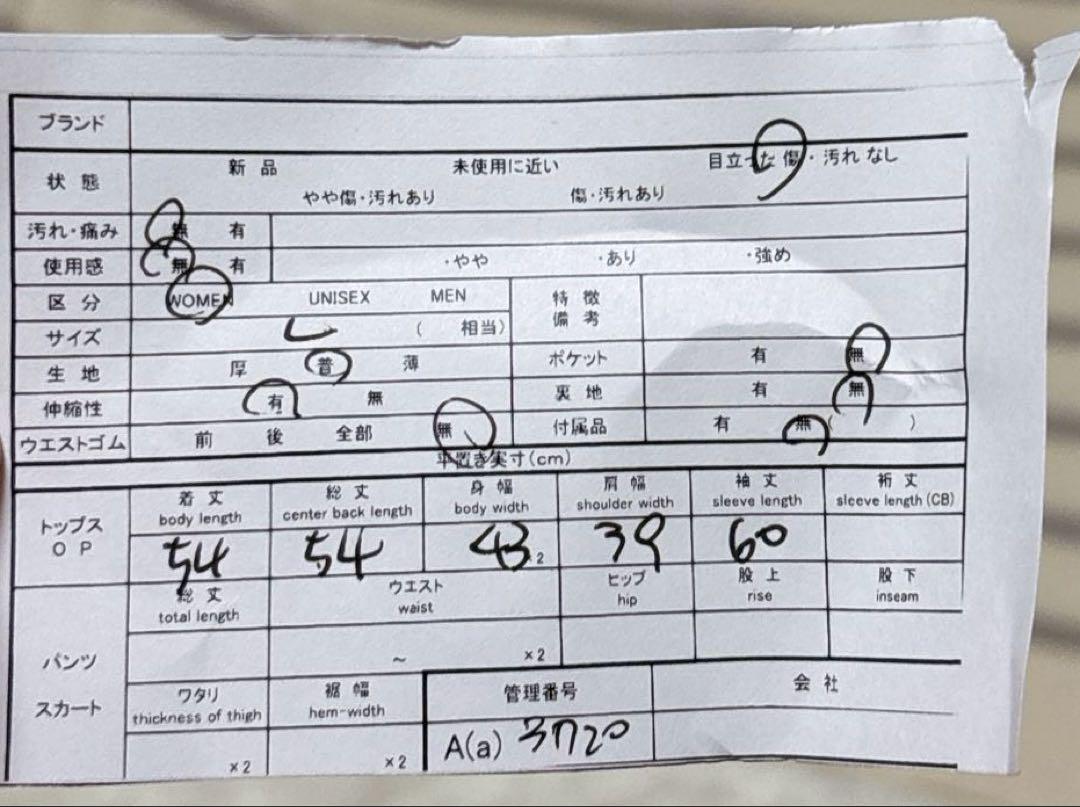 ブランド
状態 新品 未使用に近い 目立った傷・汚れなし
やや傷・汚れあり 傷・汚れあり
汚れ・痛み 無 有
使用感 無 有 ・やや ・あり ・強め
区分 WOMEN UNISEX MEN 特徴
備考
サイズ L ( 相当)
生地 厚 普 薄 ポケット 有 無
伸縮性 有 無 裏地 有 無
ウエストゴム 前 後 全部 無 付属品 有 無 ( )
平置き実寸(cm)
トップス
OP
着丈 総丈 身幅 肩幅 袖丈 裄丈
body length center back length body width shoulder width sleeve length sleeve length (CB)
54 54 43 ×2 39 60
パンツ
スカート
総丈 ウエスト ヒップ 股上 股下
total length waist hip rise inseam
~ ×2
ワタリ 裾幅 管理番号 会社
thickness of thigh hem-width
×2 ×2 A(a) 3720